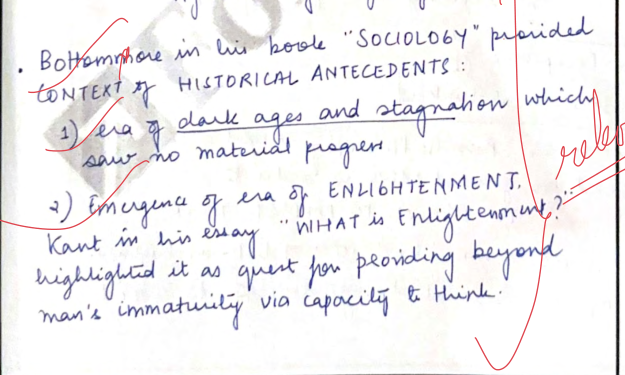 . Bottommore in his book "SOCIOLOGY" provided
CONTEXT of HISTORICAL ANTECEDENTS :
1) era of dark ages and stagnation which
saw no material progress
2) Emergence of era of ENLIGHTENMENT.
Kant in his essay "WHAT is Enlightenment?"
highlighted it as quest for peoviding beyond
man's immaturity via capacity to think.